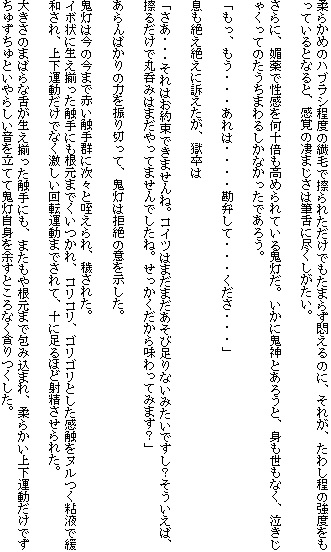 柔らかめのハブラシ程度の繊毛で擦られただけでもたまらず悶えるのに、それが、たわし程の強度をも
っているとなると、感覚の凄まじさは筆舌に尽くしがたい。
さらに、媚薬で性感を何十倍も高められている鬼灯だ。いかに鬼神とあろうと、身も世もなく、泣きじ
ゃくってのたうちまわるしかなかったであろう。
「もっ、もう・・・あれは・・・・勘弁して・・・・くださ・・・」
息も絶え絶えに訴えたが、獄卒は
「さあ・・・それはお約束できませんね。コイツはまだまだあそび足りないみたいですし？そういえば、
擦るだけで丸呑みはまだやってませんでしたね。せっかくだから味わってみます？」
あらんばかりの力を振り切って、鬼灯は拒絶の意を示した。
鬼灯は今の今まで赤い触手群に次々と咥えられ、穢された。
イボ状に生え揃った触手にも根元までくいつかれ、コリコリ、ゴリゴリとした感触をヌルつく粘液で緩
和され、上下運動だけでなく激しい回転運動までされて、十に足るほど射精させられた。
大きさのまばらな舌が生え揃った触手にも、またもや根元まで包み込まれ、柔らかい上下運動だけでず
ちゅずちゅといやらしい音を立てて鬼灯自身を余すところなく貪りつくした。